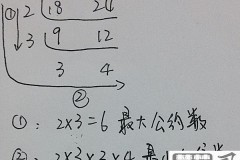 ① 2 18 24
3 9 12
3 4
②
①: 2×3=6 最大公约数
②: 2×3×3×4 最小公